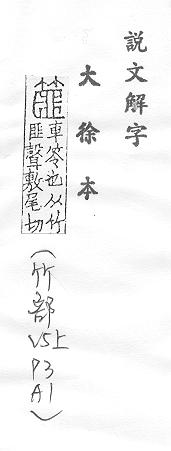 説文解字
大徐本
篚
車笭也从竹
匪聲敷尾切
(竹部V5上P3A1)